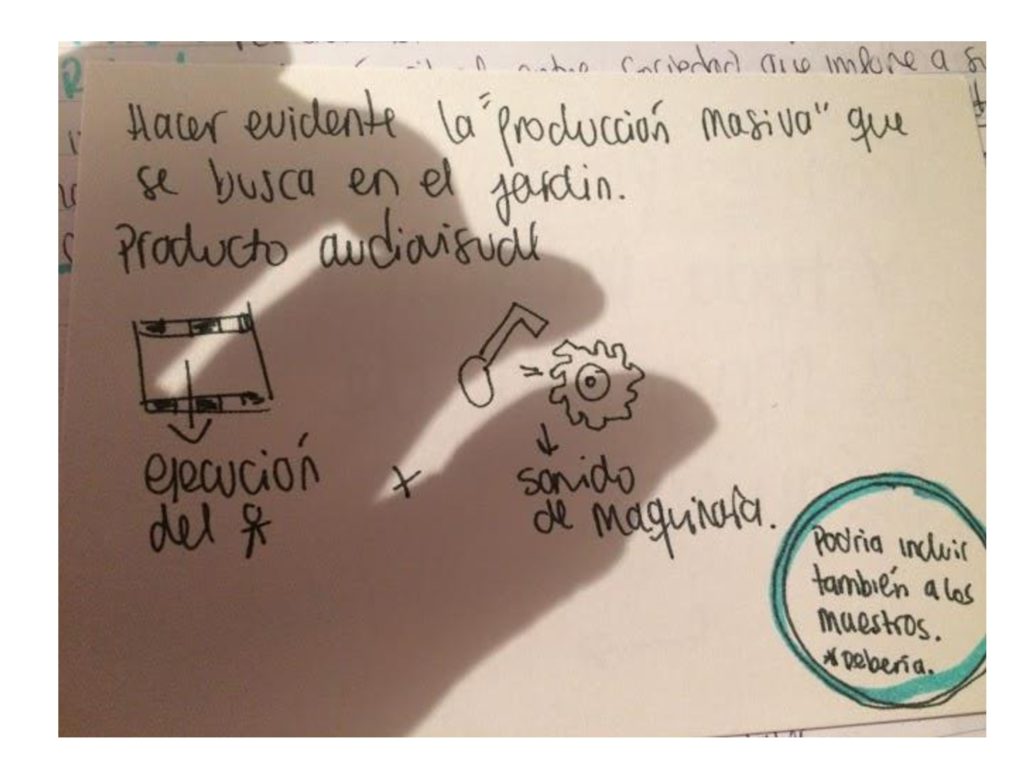 sociedad que impone a
Hacer evidente la "producción masiva" que
se busca en el jardin.
Producto audiovisual
ejecución
del
+
sonido
de maquinaria.
Podria incluir
también a los
maestros.
*Debería.